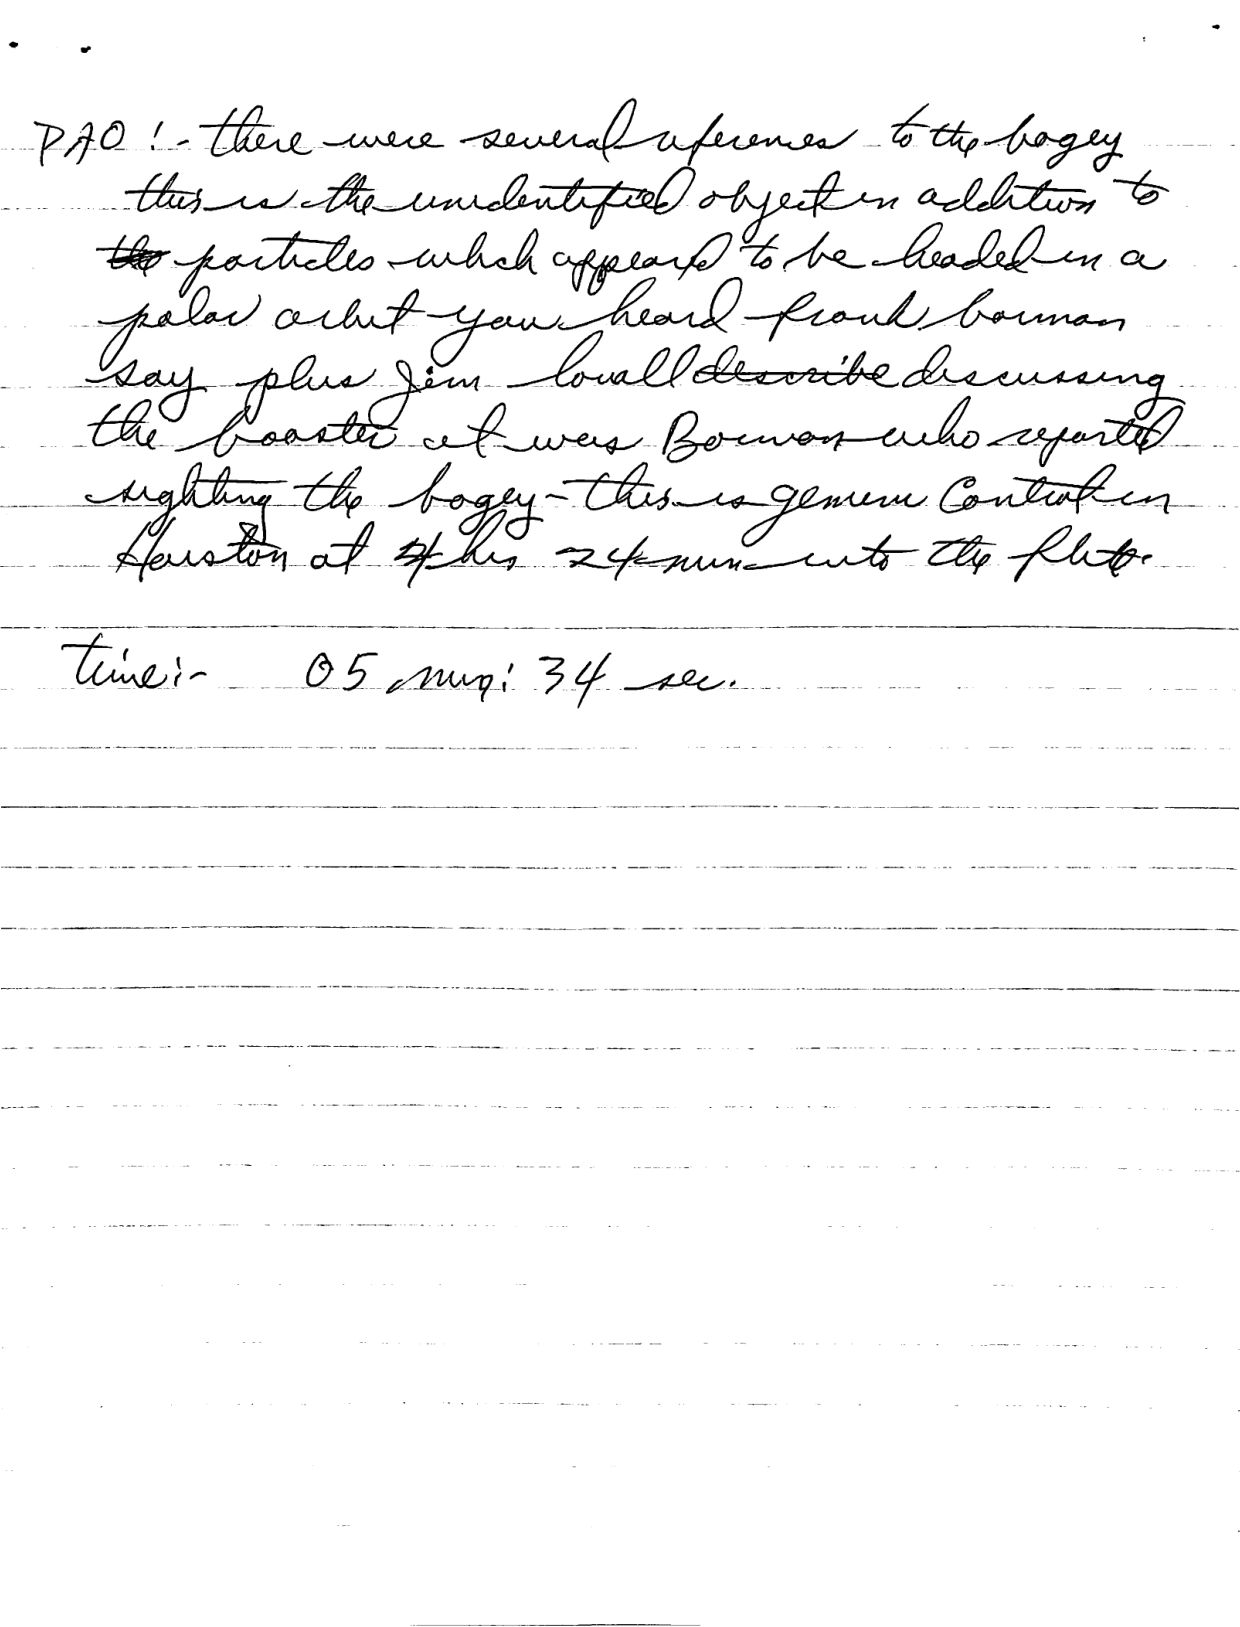 PAO :- there were several references to the bogey
this is the unidentified object in addition to
the particles which appeared to be headed in a
polar orbit you heard frank borman
say plus Jim lovall describe discussing
the booster it was Borman who reported
sighting the bogey - this is gemini Control in
Houston at 4 hrs 24 min into the flite.
time:- 05 min: 34 sec.